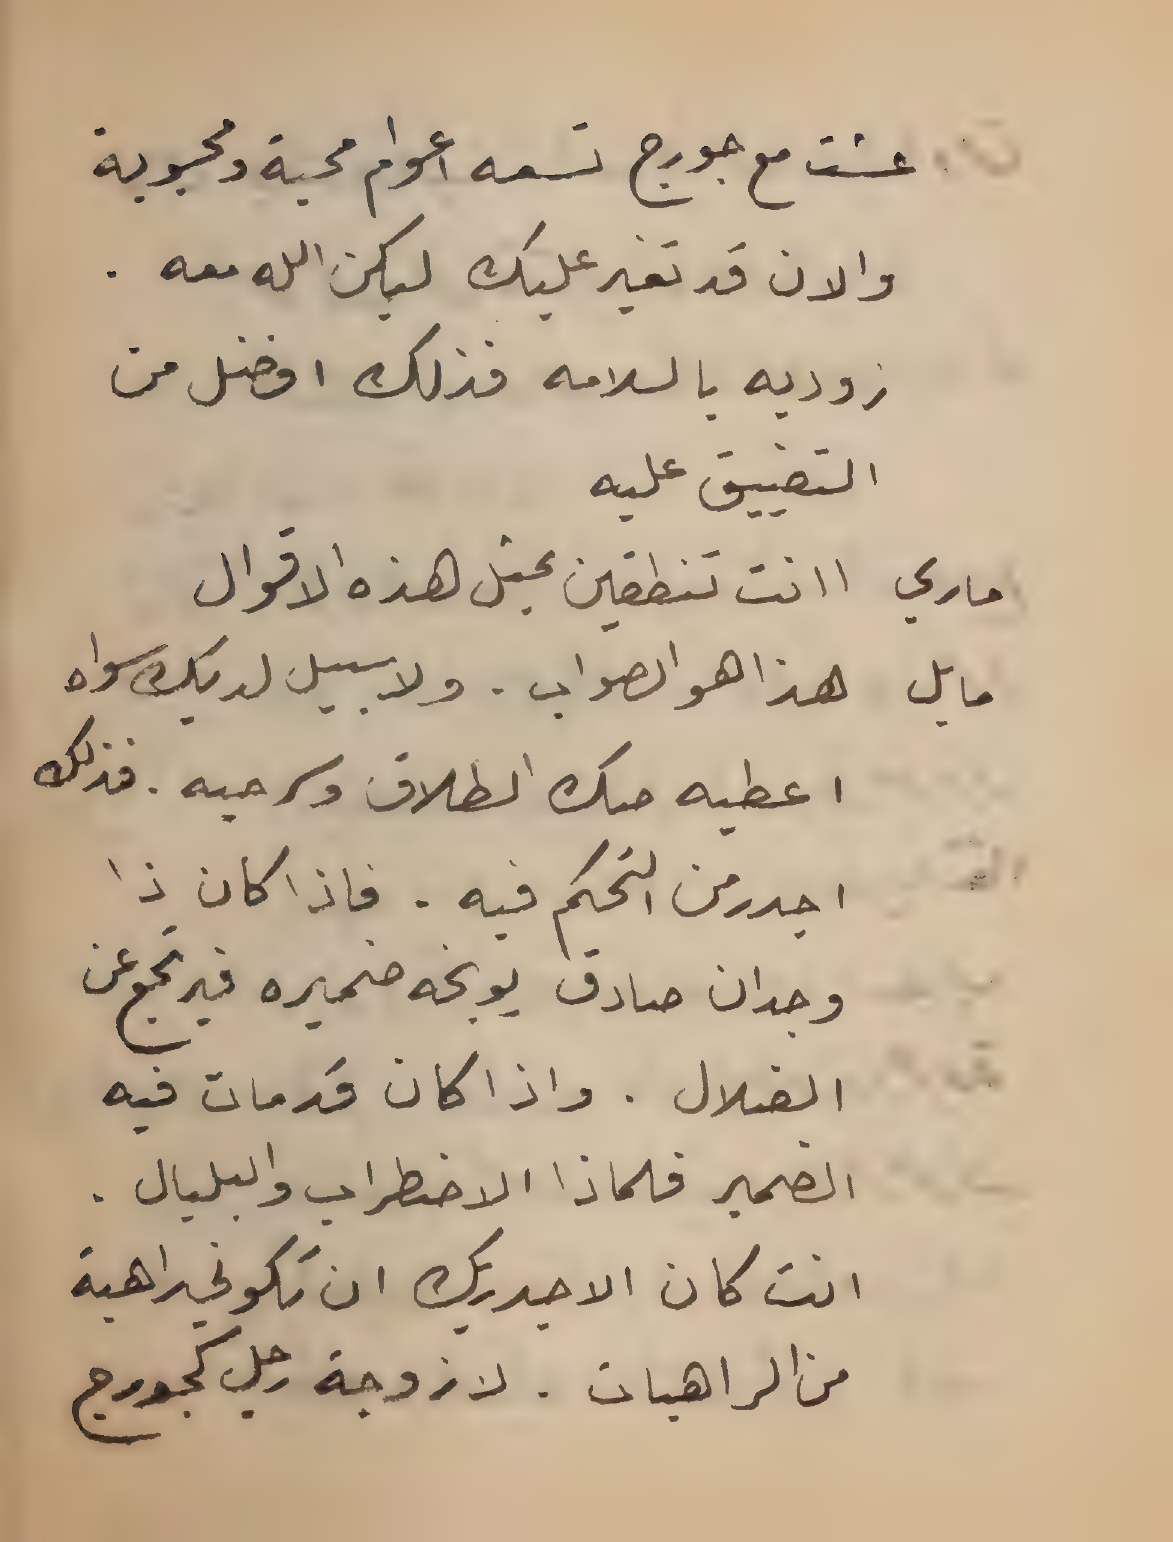 عشت مع جورج تسعه اعوام محبة ومحبوبة
والان قد تغير عليك ليكن الله معه .
زوديه بالسلامه فذلك افضل من
التضييق عليه
ماري اانت تنطقين بمثل هذه الاقوال
مايل هذا هو الصواب . ولا سبيل لديك سواه
اعطيه صك الطلاق وسرحيه . فذلك
اجدر من التحكم فيه . فاذا كان ذا
وجدان صادق يوبخه ضميره فيرتجع عن
الضلال . واذا كان قد مات فيه
الضمير فلماذا الاضطراب والبلبال .
انت كان الاجدر بك ان تكوني راهبة
من الراهبات . لا زوجة رجل كجورج